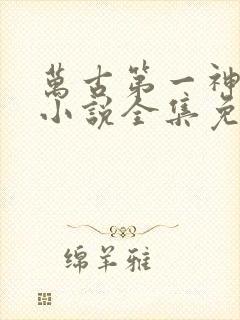 萬古第一神
小說全集免
绵羊雅